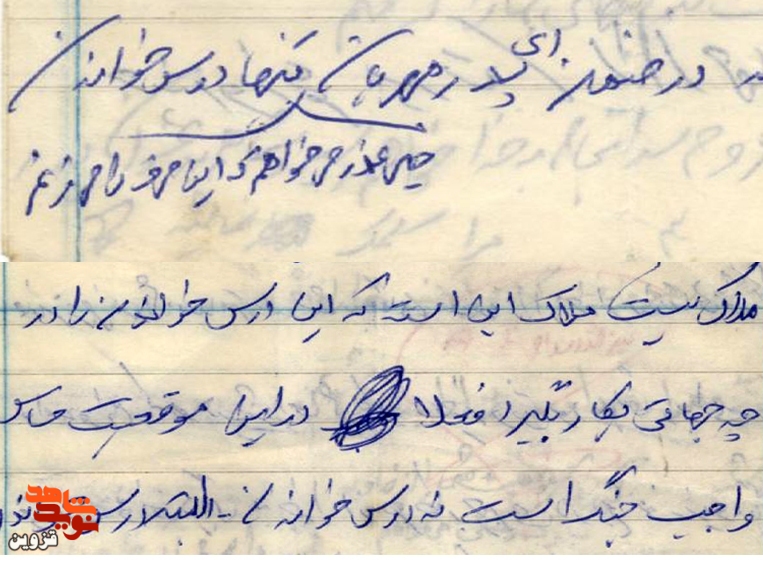 در ضمن ای پدر مهربان تنها درس خواندن
خیلی عذر می‌خواهم که این حرف را می‌زنم
ملاک نیست ملاک این است که این درس خواندن را در
چه جهاتی بکار بگیرد فعلا در این موقعیت
واجب جنگ است نه درس خواندن - البته درس
نوید شاهد
قزوین